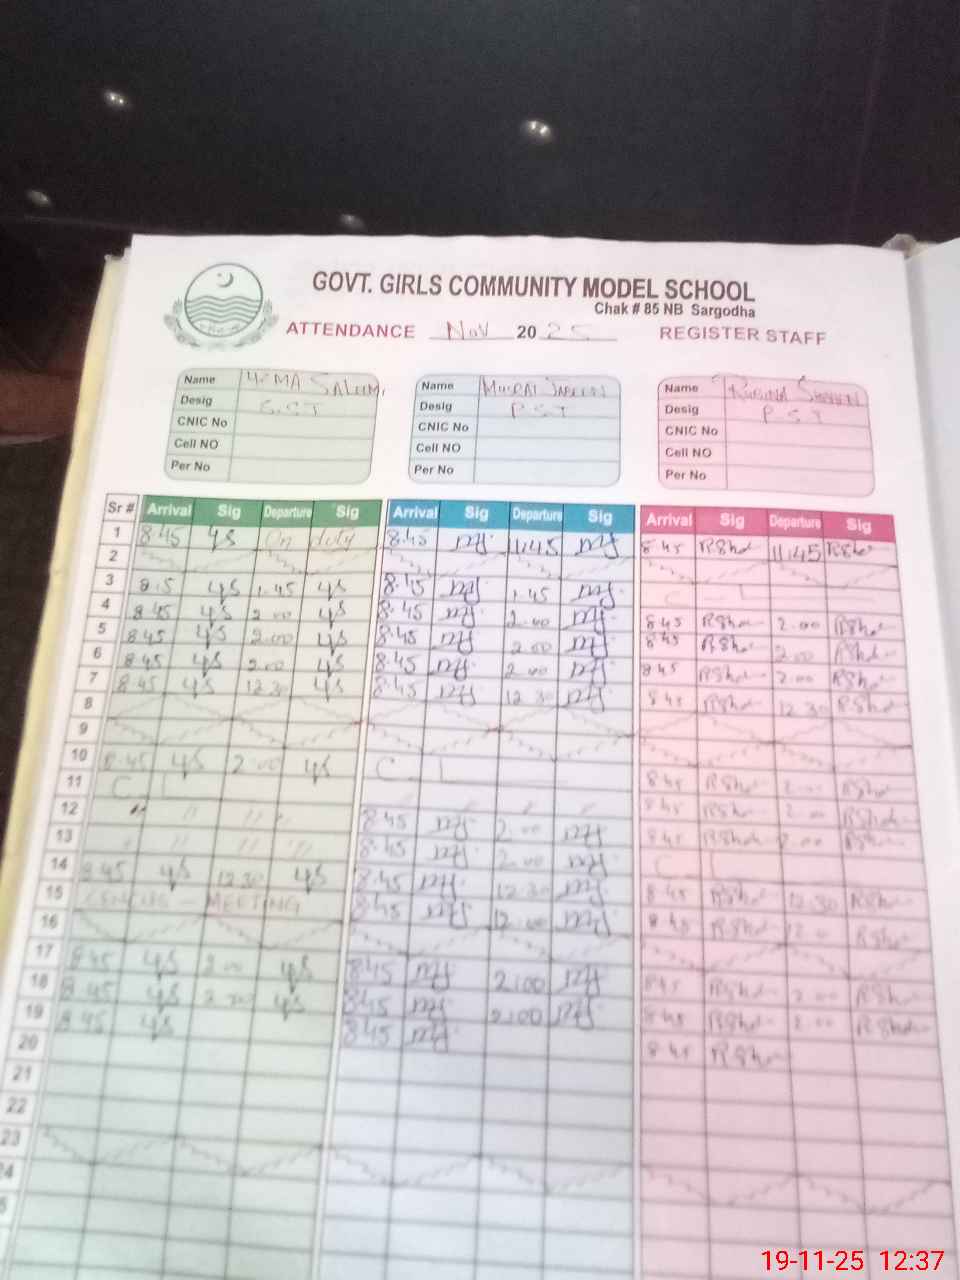 GOVT. GIRLS COMMUNITY MODEL SCHOOL
Chak # 85 NB Sargodha
ATTENDANCE Nov 2025 REGISTER STAFF
Name SALEEM Name Name RUBINA
Desig Desig P.S.T Desig P.S.T
CNIC No CNIC No CNIC No
Cell NO Cell NO Cell NO
Per No Per No Per No
Sr # Arrival Sig Departure Sig Arrival Sig Departure Sig Arrival Sig Departure Sig
1 8.45 ys On duty 8.45 mj 11.45 mj 8 45 RSha 11.45 RSha
2
3 8.15 ys 1.45 ys 8.45 mj 1.45 mj C L
4 8.45 ys 2.00 ys 8.45 mj 2.00 mj 8 45 RSha 2.00 RSha
5 8.45 ys 2.00 ys 8.45 mj 2.00 mj 8 45 RSha 2.00 RSha
6 8.45 ys 2.00 ys 8.45 mj 2.00 mj 8 45 RSha 2.00 RSha
7 8.45 ys 12.30 ys 8.45 mj 12.30 mj 8 45 RSha 12.30 RSha
8
9
10 8.45 ys 2.00 ys C L 8 45 RSha 2.00 RSha
11 C L " " 8 45 RSha 2.00 RSha
12 " " " " 8.45 mj 2.00 mj 8 45 RSha 2.00 RSha
13 " " " " 8.45 mj 2.00 mj C L
14 8.45 ys 12.30 ys 8.45 mj 12.30 mj 8 45 RSha 12.30 RSha
15 CENSUS - MEETING 8.45 mj 12.00 mj 8 45 RSha RSha
16
17 8.45 ys 2.00 ys 8.45 mj 2.00 mj 8 45 RSha 2.00 RSha
18 8.45 ys ys 8.45 mj 2.00 mj 8 45 RSha 2.00 RSha
19 8.45 ys 8.45 mj 8 45 RSha
20
21
22
23
19-11-25 12:37